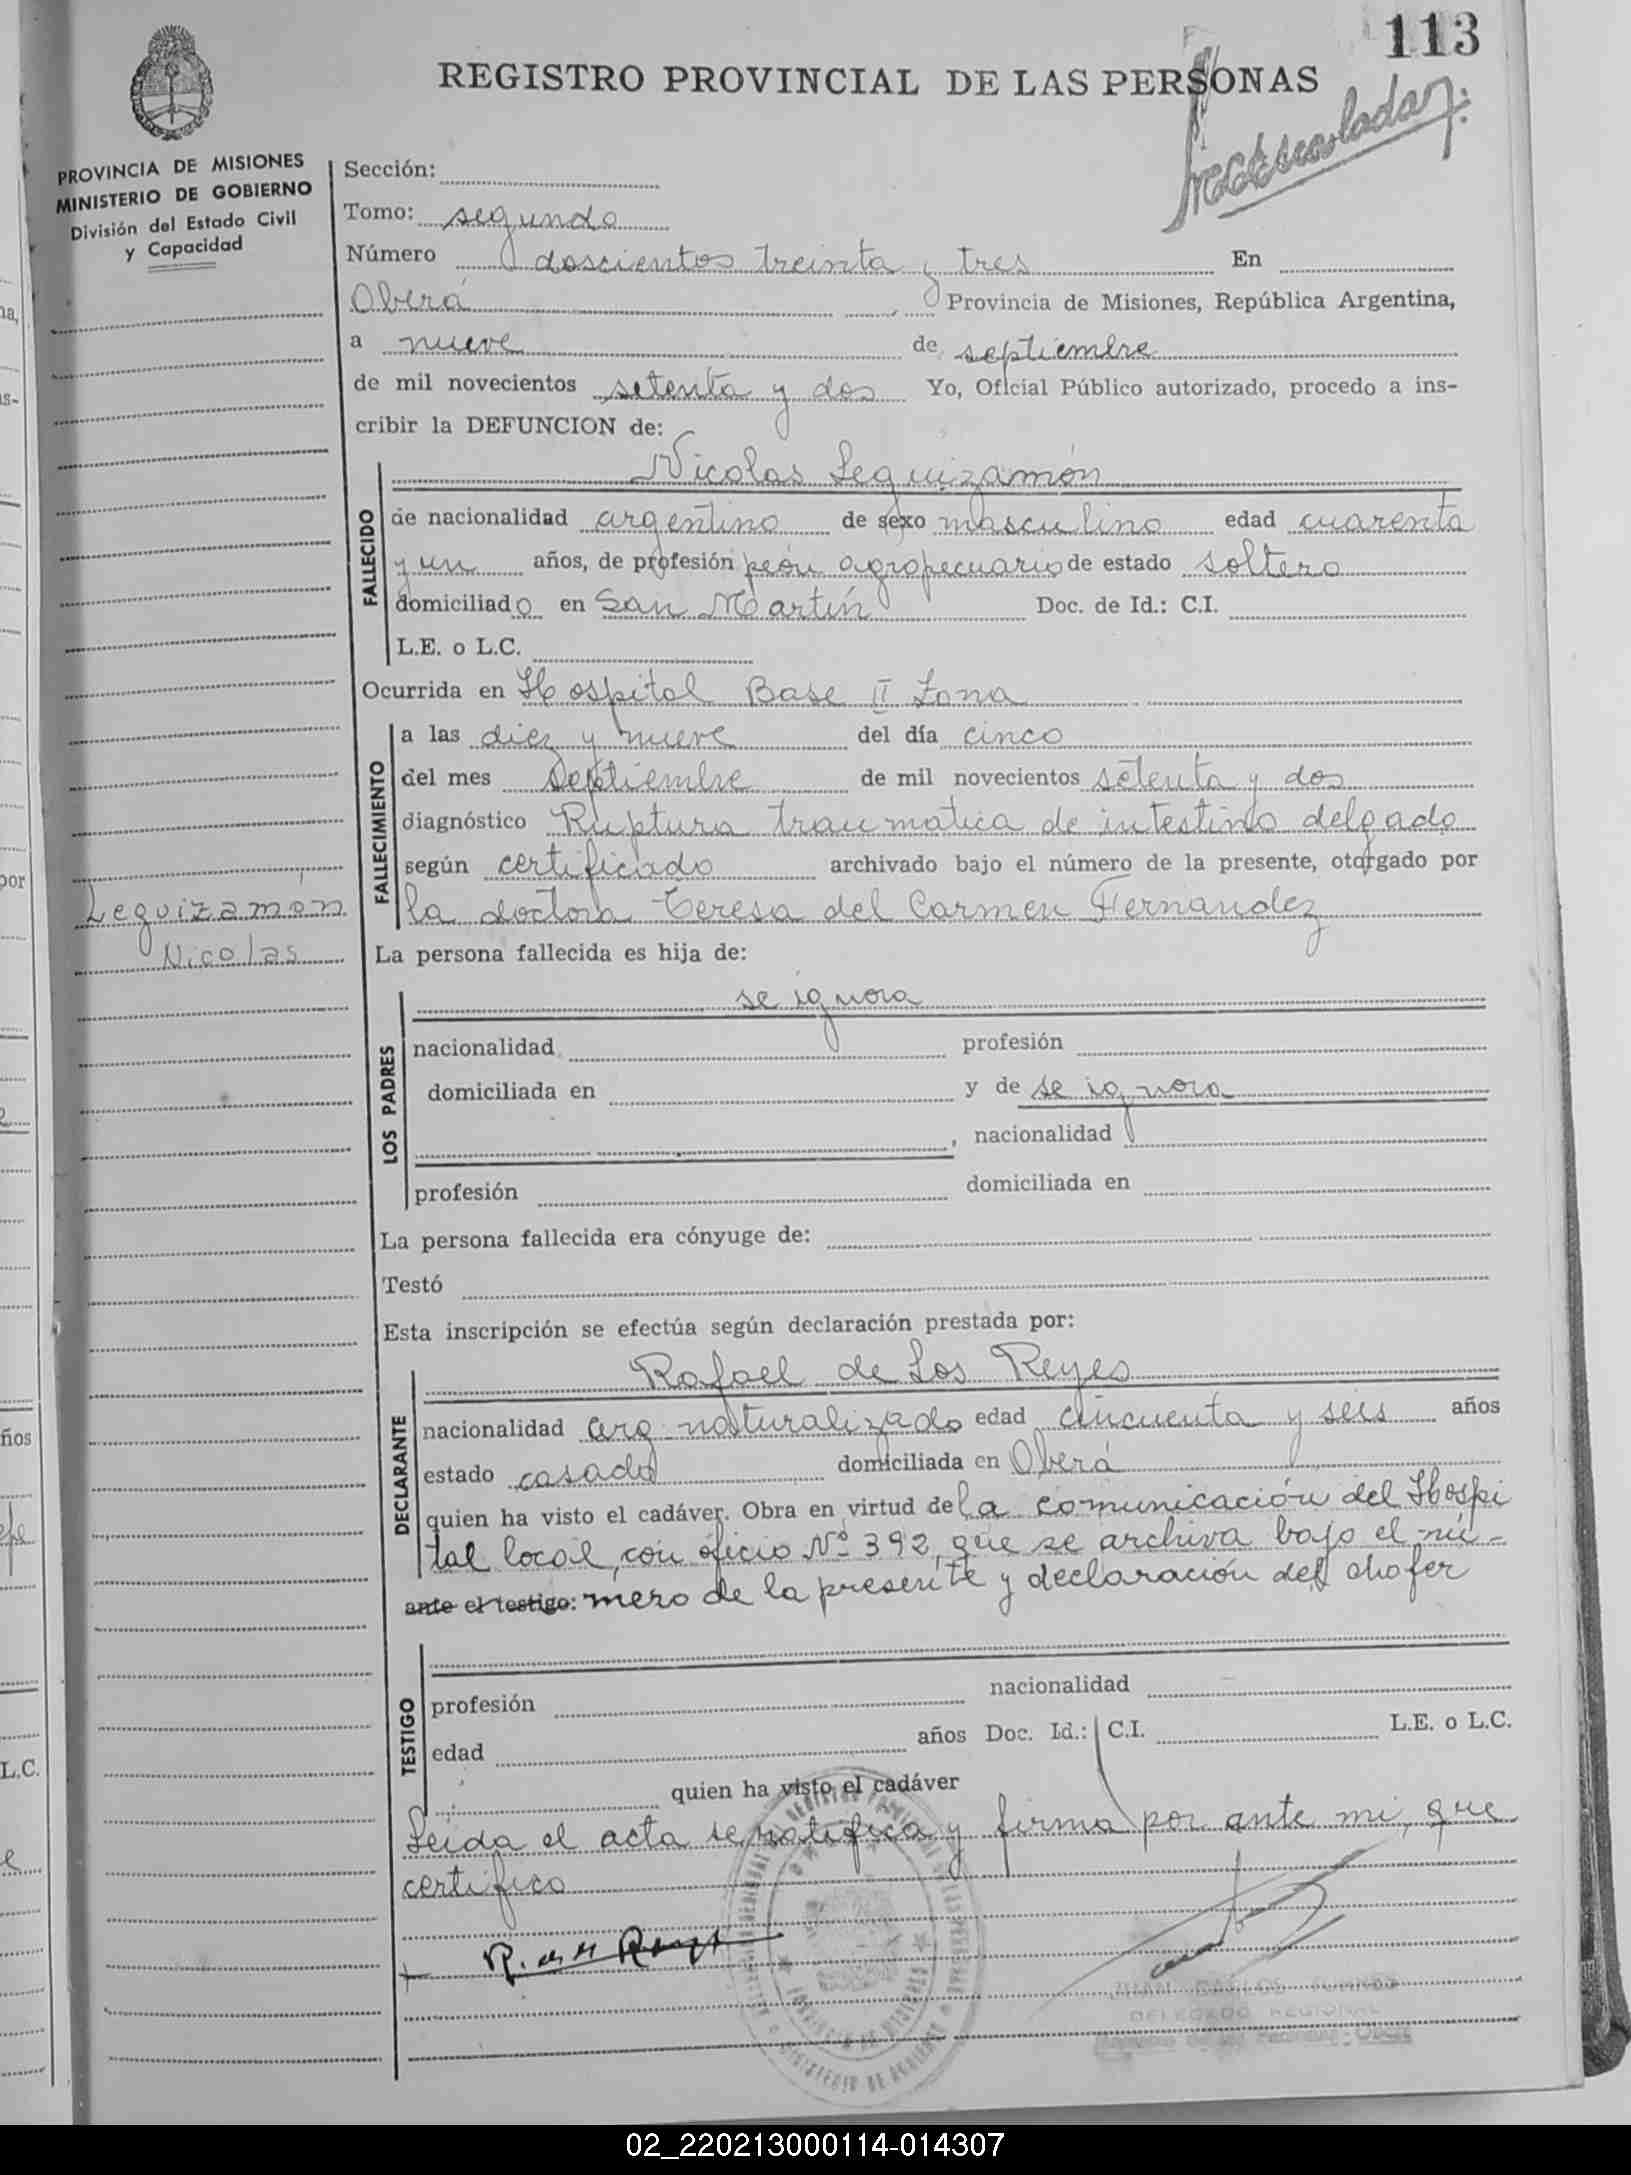 113
REGISTRO PROVINCIAL DE LAS PERSONAS
PROVINCIA DE MISIONES
MINISTERIO DE GOBIERNO
División del Estado Civil
y Capacidad
Sección:
Tomo: segundo
Número doscientos treinta y tres En
Oberá Provincia de Misiones, República Argentina,
a nueve de septiembre
de mil novecientos setenta y dos Yo, Oficial Público autorizado, procedo a ins-
cribir la DEFUNCION de:
Nicolas Leguizamón
FALLECIDO
de nacionalidad argentino de sexo masculino edad cuarenta
y un años, de profesión peón agropecuario de estado soltero
domiciliado en San Martín Doc. de Id.: C.I.
L.E. o L.C.
Ocurrida en Hospital Base II Zona
FALLECIMIENTO
a las diez y nueve del día cinco
del mes septiembre de mil novecientos setenta y dos
diagnóstico Ruptura traumatica de intestino delgado
según certificado archivado bajo el número de la presente, otorgado por
la doctora Teresa del Carmen Fernandez
Leguizamón
Nicolas
La persona fallecida es hija de:
LOS PADRES
se ignora
nacionalidad profesión
domiciliada en y de se ignora
, nacionalidad
profesión domiciliada en
La persona fallecida era cónyuge de:
Testó
Esta inscripción se efectúa según declaración prestada por:
DECLARANTE
Rafael de Los Reyes
nacionalidad arg. naturalizado edad cincuenta y seis años
estado casado domiciliada en Oberá
quien ha visto el cadáver. Obra en virtud de la comunicación del Hospi
tal local, con oficio Nº 392, que se archiva bajo el nú-
ante el testigo: mero de la presente y declaración del chofer
TESTIGO
profesión nacionalidad
edad años Doc. Id.: C.I. L.E. o L.C.
quien ha visto el cadáver
Leida el acta se ratifica y firma por ante mi, que
certifico
DELEGADO REGIONAL
02_220213000114-014307